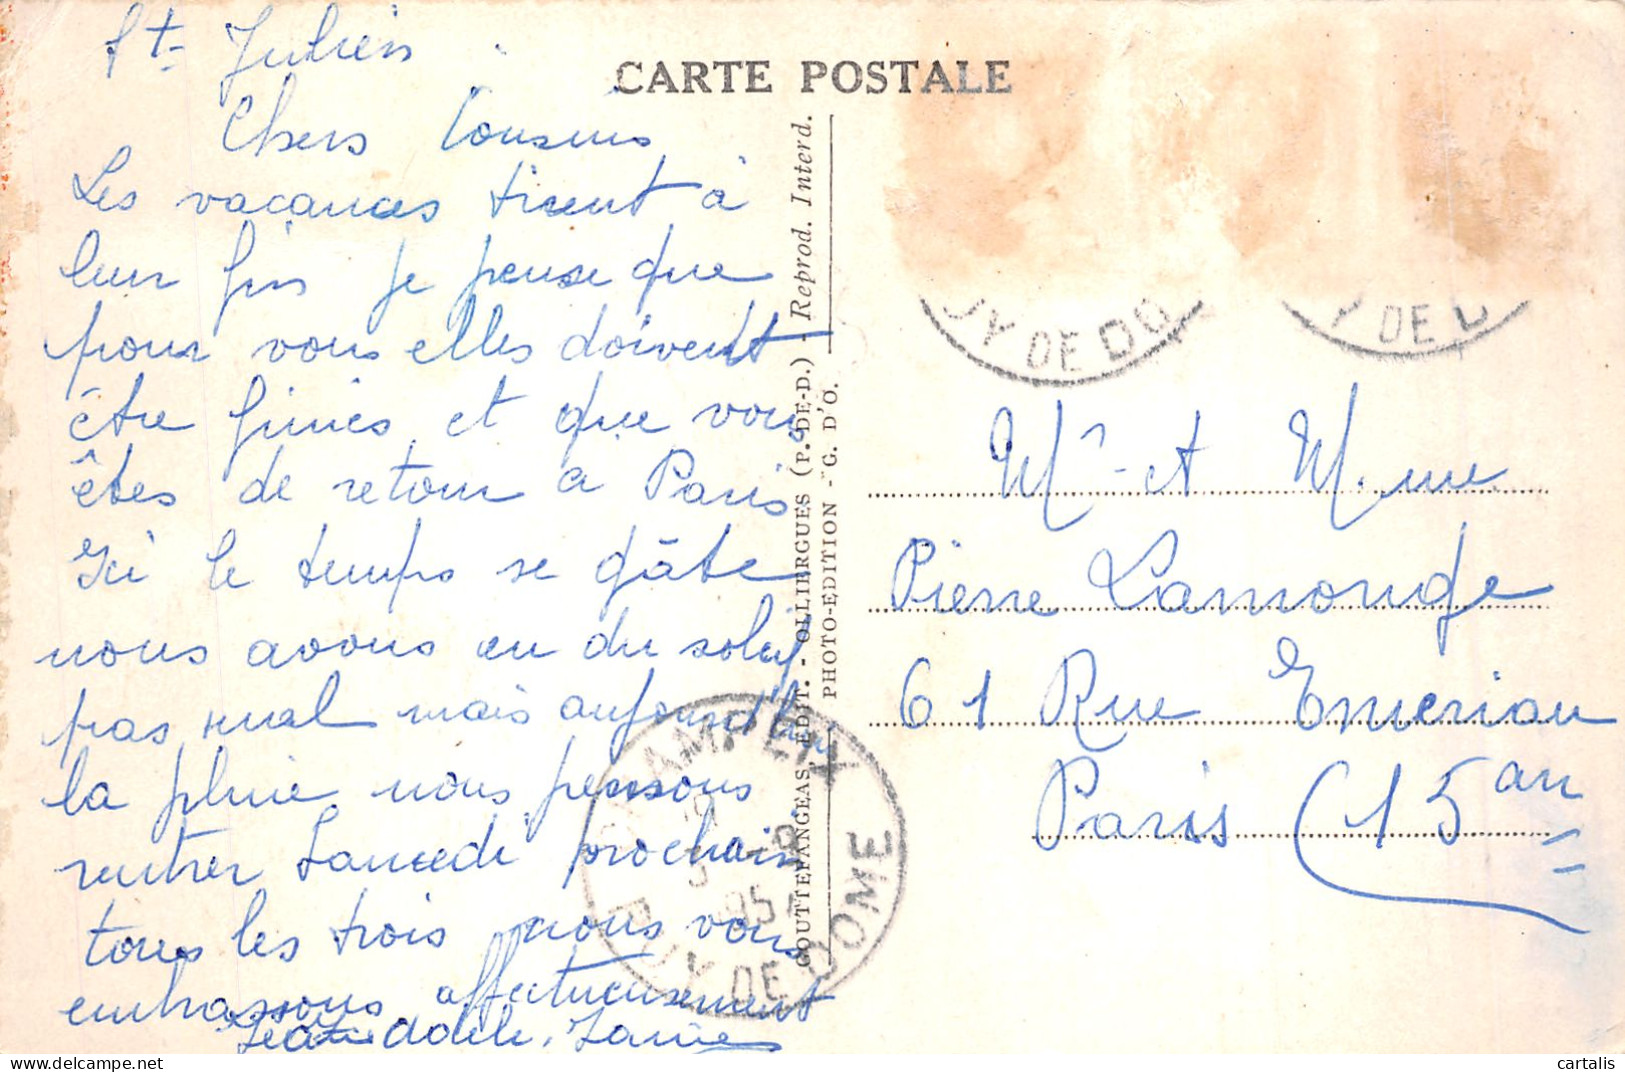 St Julien
Chers Cousins
Les vacances tirent à
leur fin je pense que
pour vous elles doivent
être finies et que vous
êtes de retour a Paris
Ici le temps se gâte
nous avons eu du soleil
pas mal mais aujourd'hui
la pluie nous pensons
rentrer Samedi prochain
tous les trois nous vous
embrassons affectueusement
CARTE POSTALE
GOUTTEFANGEAS, EDIT. - OLLIERGUES (P.-DE-D.) - Reprod. Interd.
PHOTO-EDITION - G. D'O.
PUY DE DOME
Y DE D
Mr et Mme
Pierre Lamouge
61 Rue Emeriau
Paris (15 au
cartalis